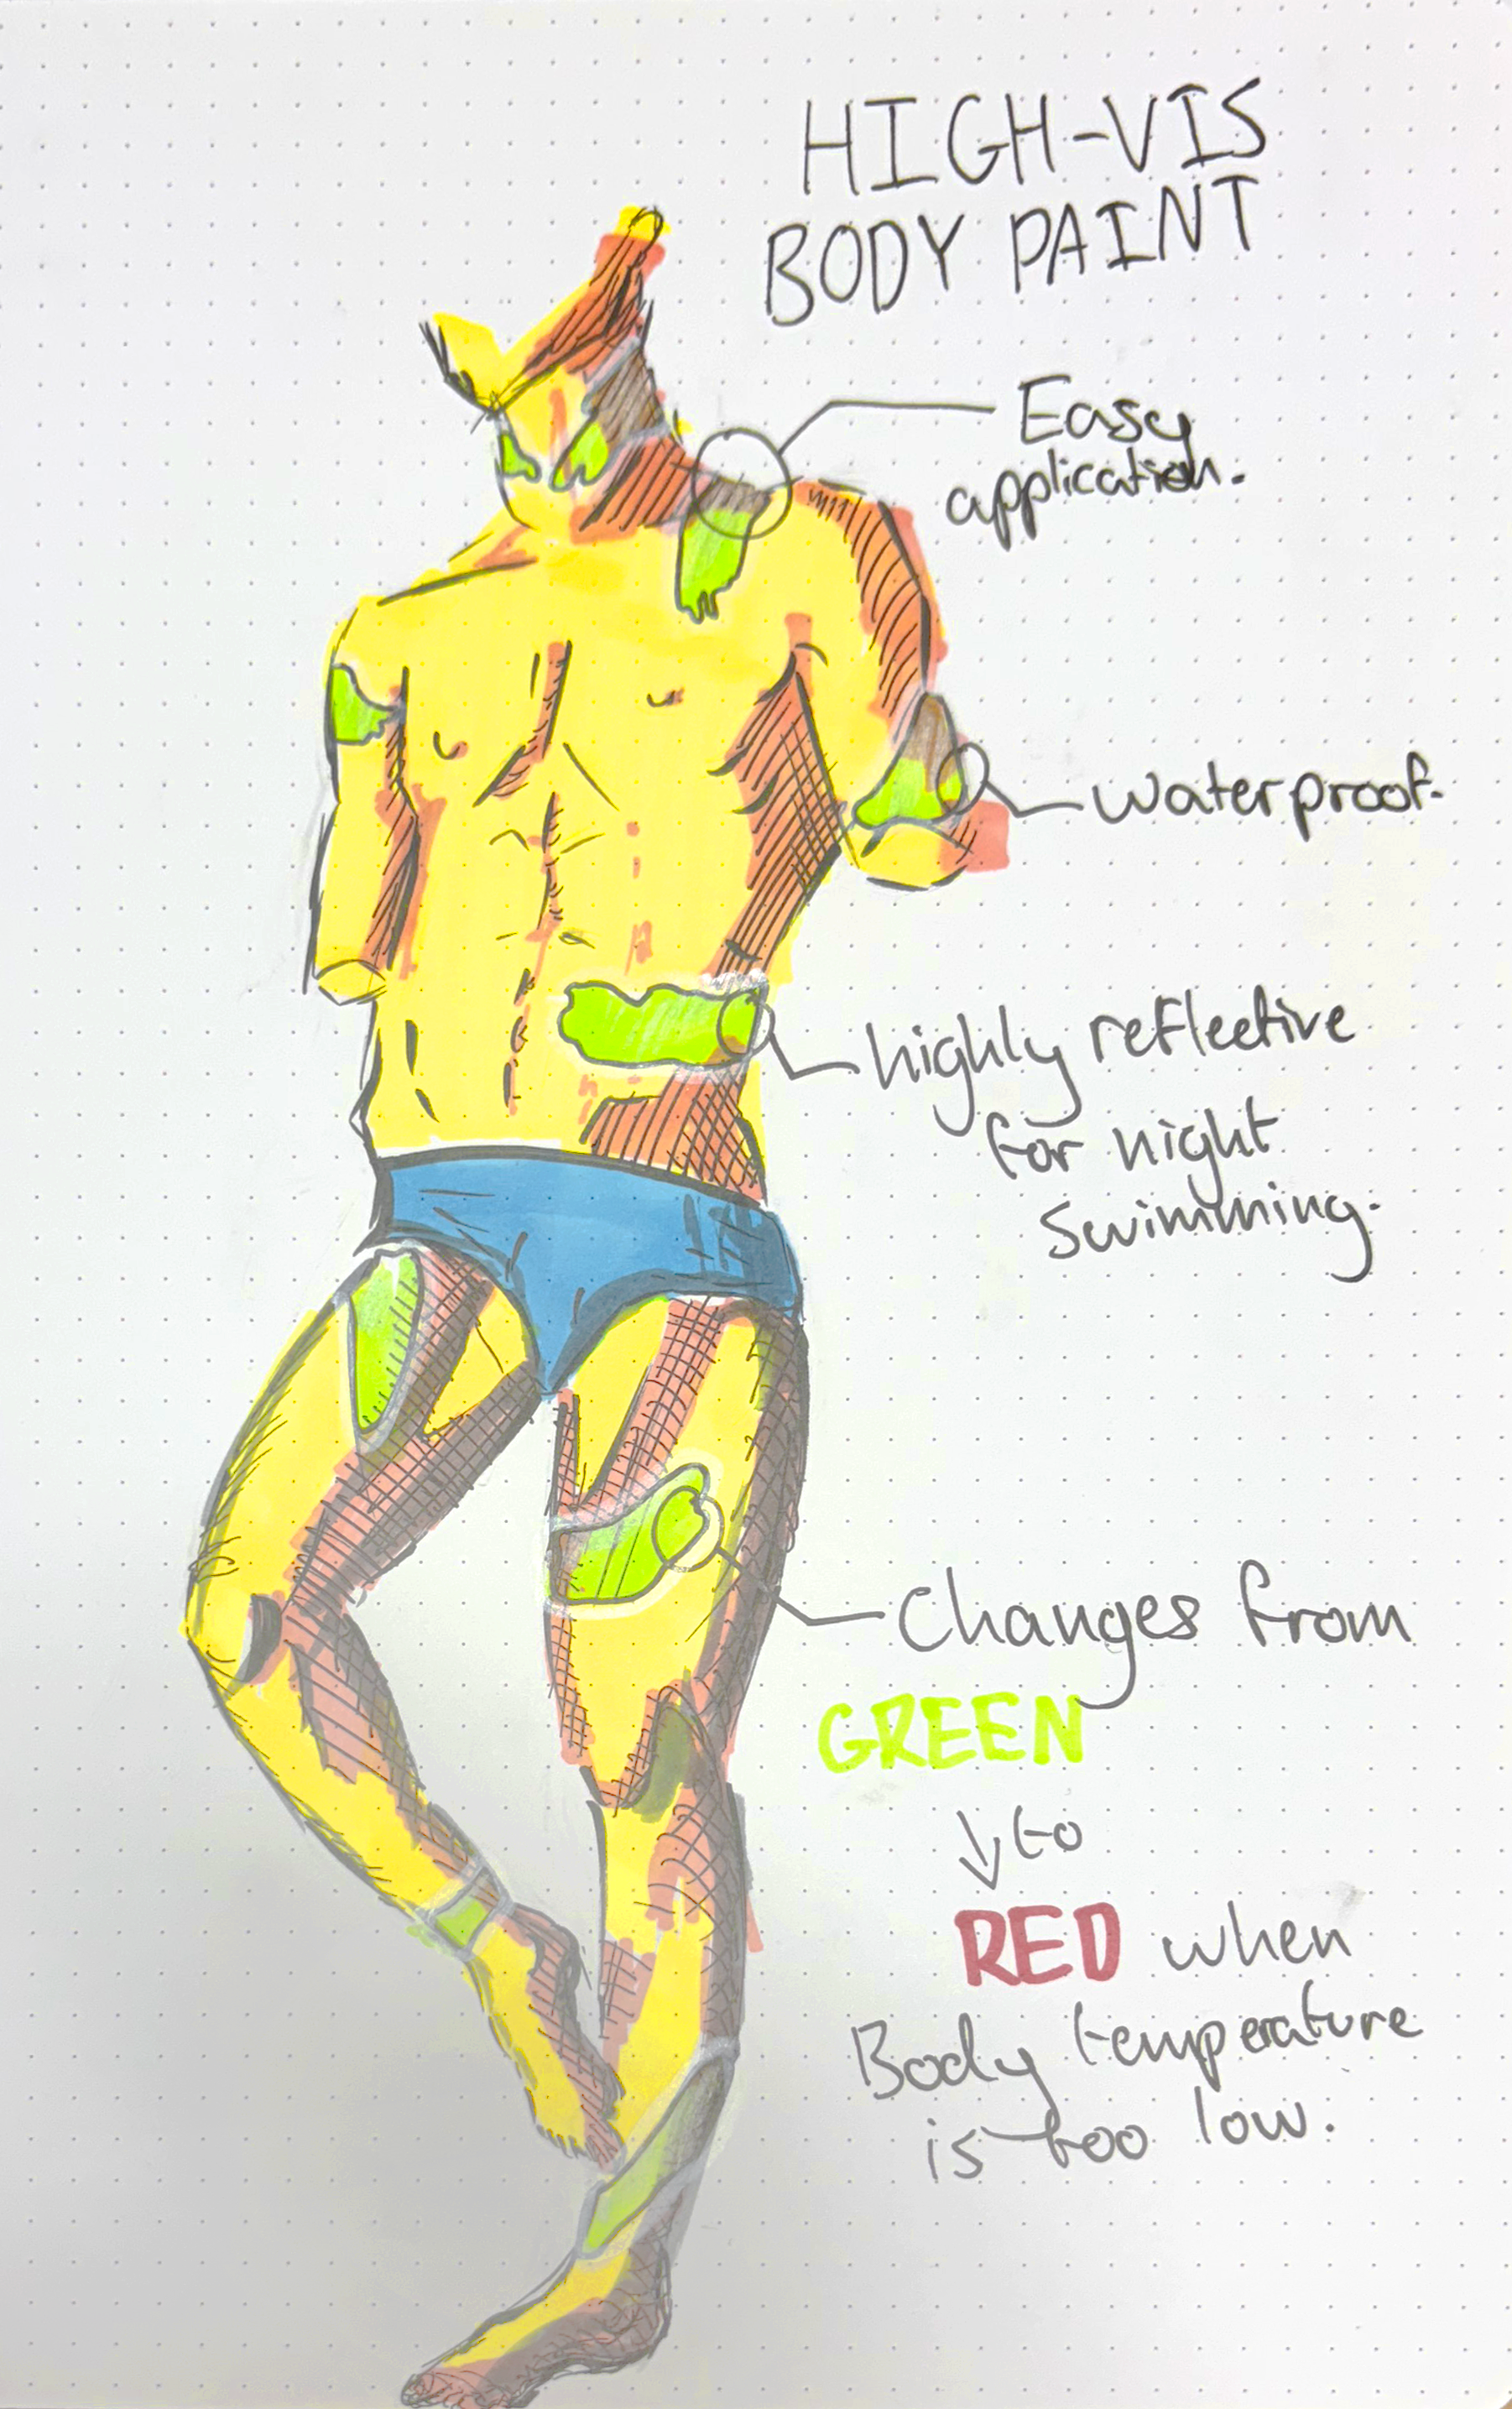 HIGH-VIS
BODY PAINT
Easy
application.
waterproof.
highly reflective
for night
swimming.
Changes from
GREEN
to
RED when
Body temperature
is too low.